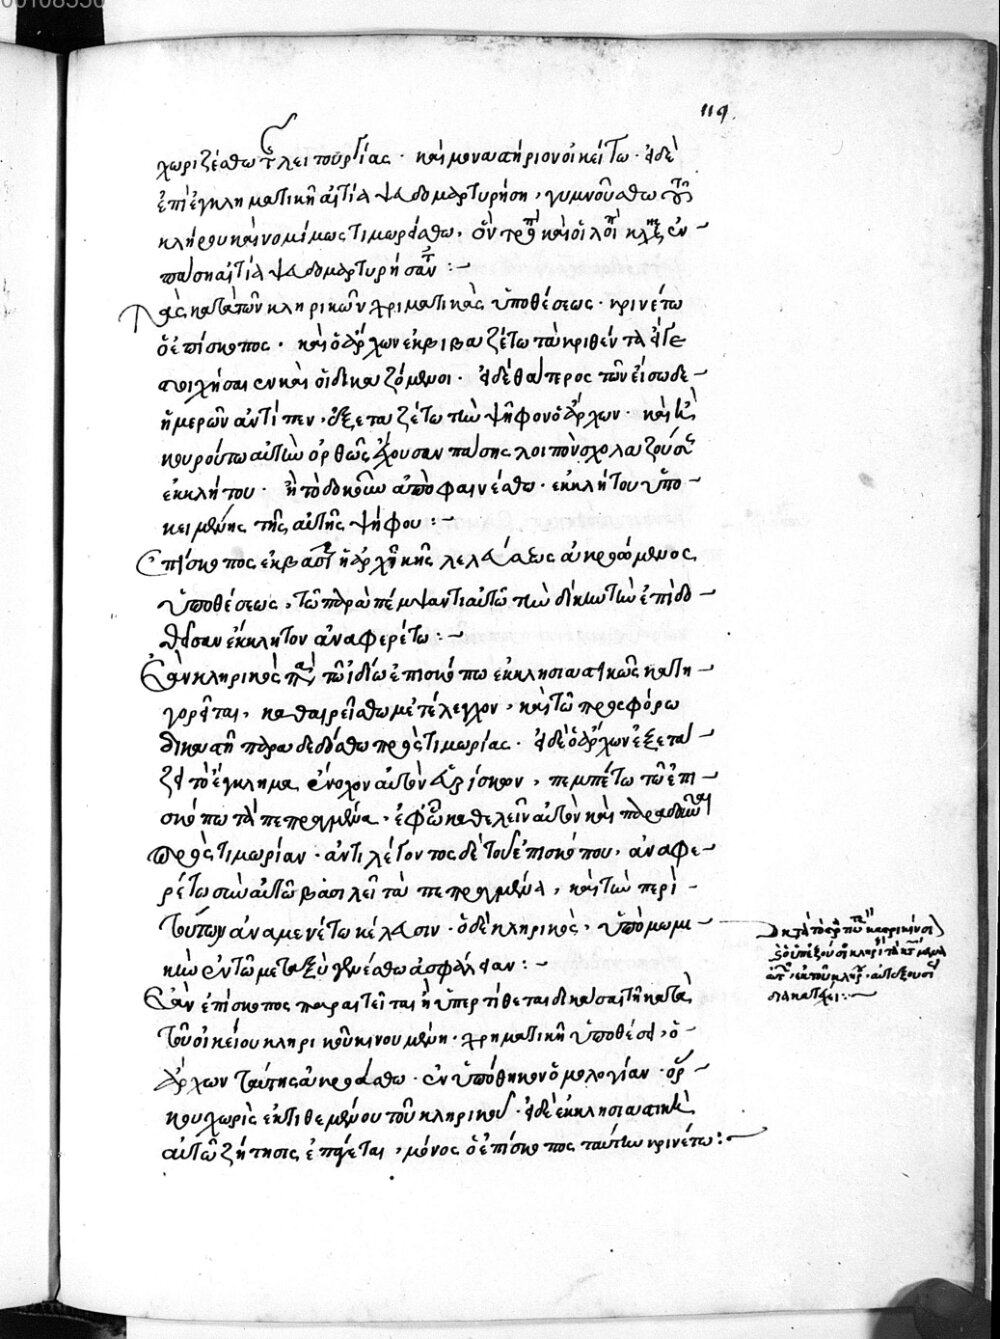 00108556
119
χωριζέσθω τῆς λειτουργίας · καὶ μοναστήριον οἰκείτω · εἰ δὲ
ἐπὶ ἐγκληματικῇ αἰτίᾳ ψευδομαρτυρήσῃ, γυμνούσθω τοῦ
κλήρου καὶ νομίμως τιμωρείσθω. οἱ λοιποὶ κληρικοὶ ἐν
πάσῃ αἰτίᾳ ψευδομαρτυρήσαντες :~
Τὰς κατὰ τῶν κληρικῶν χρηματικὰς ὑποθέσεως · κρινέτω
ὁ ἐπίσκοπος · καὶ ὁ ἄρχων ἐκβιβαζέτω τὰ κριθέντα εἴγε
στοιχήσουσιν καὶ οἱ δικαζόμενοι · εἰ δὲ θάτερος τῶν εἴσω δέ-
ἡμερῶν ἀντείπεν, ἐξεταζέτω τὴν ψῆφον ὁ ἄρχων · καὶ
κυρούτω αὐτὴν ὀρθῶς ἔχουσαν πάσης λοιπὸν σχολαζούσης
ἐκκλήτου · ἢ τὸ δοκοῦν ἀποφαινέσθω · ἐκκλήτου ὑπο-
κειμένης τῆς αὐτῆς ψήφου :~
Ἐπίσκοπος ἐκ βασιλικῆς ἢ ἀρχικῆς κελεύσεως ἀκροώμενος
ὑποθέσεως, τῷ παραπέμψαντι αὐτῷ τὴν δίκην τὴν ἐπιδο-
θεῖσαν ἔκκλητον ἀναφερέτω :~
Ἐὰν κληρικὸς παρὰ τῷ ἰδίῳ ἐπισκόπῳ ἐκκλησιαστικῶς κατη-
γορεῖται, καθαιρείσθω μετ' ἔλεγχον, καὶ τῷ προσφόρῳ
δικαστῇ παραδεδόσθω πρὸς τιμωρίας · εἰ δὲ ὁ ἄρχων ἐξετά-
ζει τὸ ἔγκλημα, ἔνοχον αὐτὸν εὑρίσκων, πεμπέτω τῷ ἐπι-
σκόπῳ τὰ πεπραγμένα, ἐφ' ᾧ καθελεῖν αὐτὸν καὶ παραδοῦναι
πρὸς τιμωρίαν · ἀντιλέγοντος δὲ τοῦ ἐπισκόπου, ἀναφε-
ρέτω σὺν αὐτῷ βασιλεῖ τὰ πεπραγμένα, καὶ τὴν περὶ
τούτων ἀναμενέτω κέλευσιν · ὁ δὲ κληρικὸς, ὑπὸ νομι-
κὴν ἐν τῷ μεταξὺ γενέσθω ἀσφάλειαν :~
Ἐὰν ἐπίσκοπος παραιτεῖται ἢ ὑπερτίθεται δικάσαι τῇ κατὰ
τοῦ οἰκείου κληρικοῦ κινουμένῃ · χρηματικῇ ὑποθέσει, ὁ
ἄρχων ταύτης ἀκροάσθω · ἐν ὑποθήκην ὁμολογίαν · ὅρ-
κου χωρὶς ἐκτιθεμένου τοῦ κληρικοῦ · εἰ δὲ ἐκκλησιαστικὴ
αὐτῷ ζήτησις ἐπάγεται, μόνος ὁ ἐπίσκοπος ταύτην κρινέτω :~